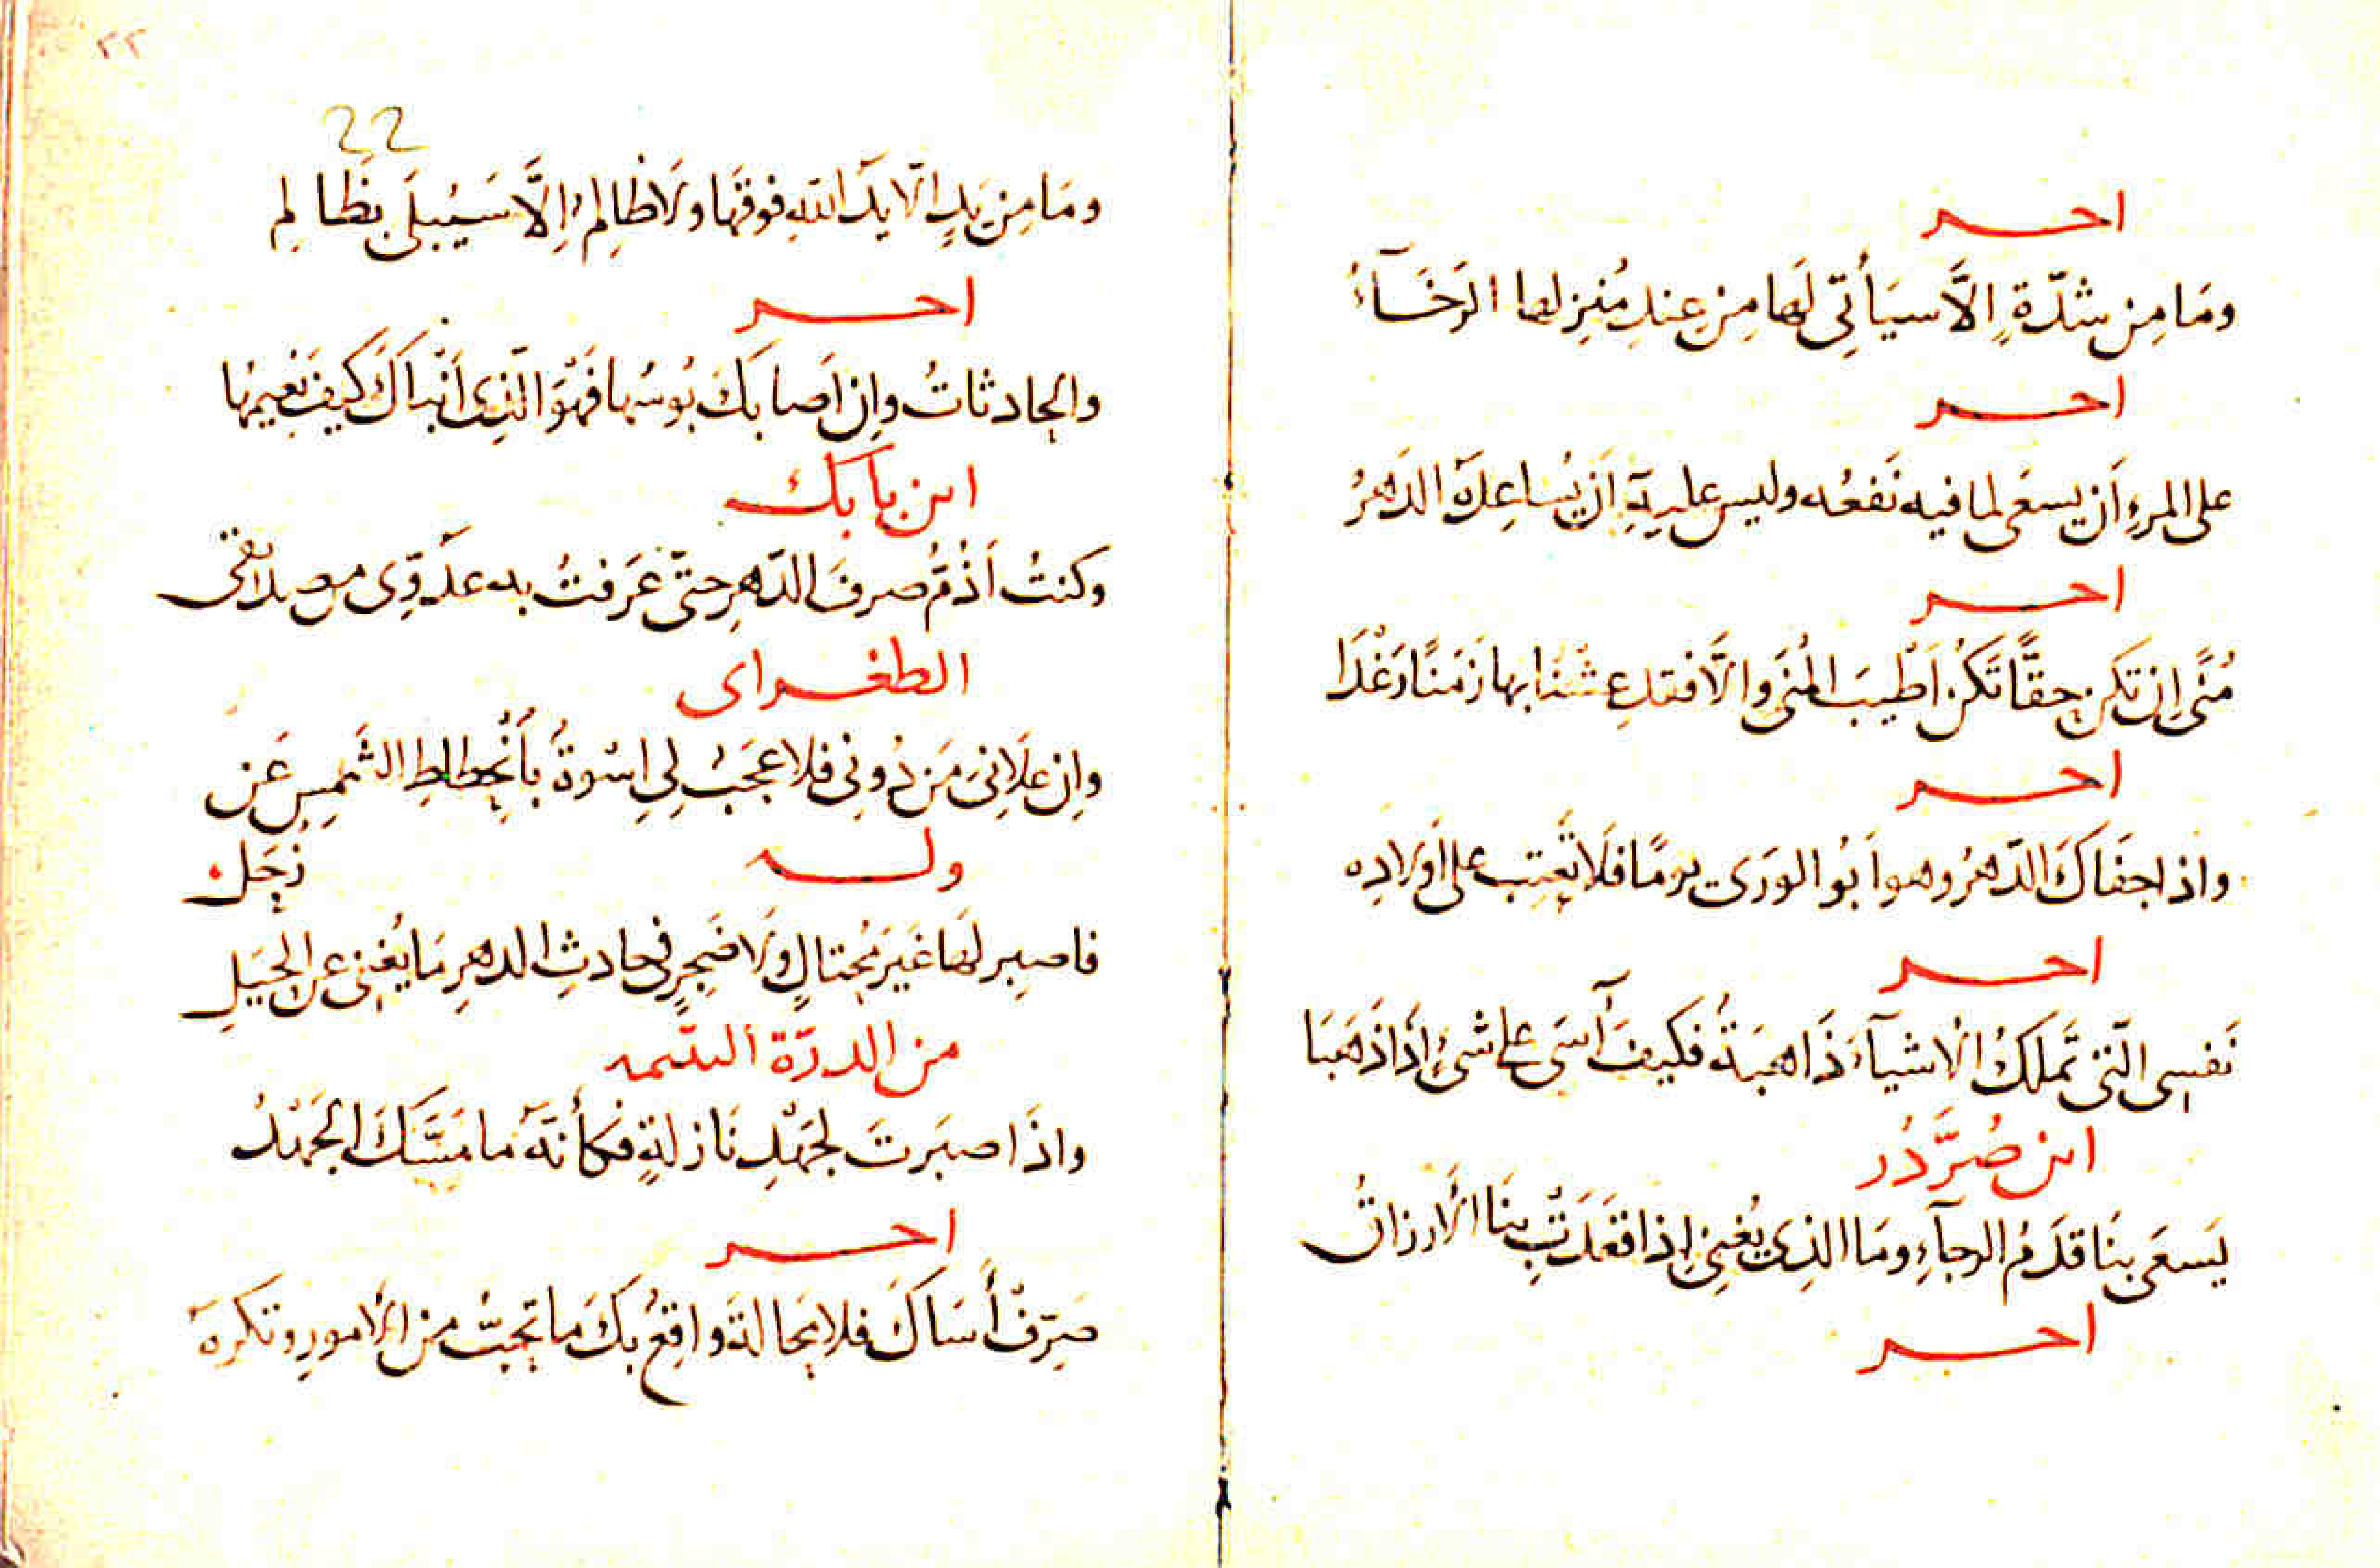 اخر
ومَا مِن شدّةٍ إلاَّ سيَأتِى لَها مِن عِندِ مُنزِلها الرَخَآءُ
اخر
على المرءِ أن يسعَى لما فيه نَفعُه وليس عليهِ أن يُساعِدَهُ الدَهرُ
اخر
مُنًى إن تَكن حقًّا تَكُن أطْيبَ المُنَى والّا فقد عشْنَا بها زَمَنًا رَغْدَا
اخر
واذا جفَاكَ الدّهرُ وهو اَبُو الورَى يومًا فَلَا تَعتِب على اَولادِه
اخر
نَفسِى الّتى تَملكُ الأشيآءَ ذَاهبَةٌ فكيفَ آسَى على شىْءٍ اِذَا ذَهَبَا
ابن صُرَّدُر
يَسعَى بنَا قدَمُ الرجآءِ ومَا الذِى يُغنِى اِذا قعَدَتْ بِنَا الأرزاقُ
اخر
٢٢
22
ومَا مِن يَدٍ الّا يَدُ اللّهِ فوقَها ولَا ظَالِمٍ اِلَّا سَيُبلَى بِظَالِمِ
اخر
والحادثاتُ واِن اَصابَكَ بُوسُها فَهْوَ الّذِى اَنْبَاكَ كيفَ نَعِيمُها
ابن بابَك
وكنتُ اَذُمُّ صرفَ الدّهرِ حتّى عَرَفتُ به عدُوِّى من صديقى
الطغراى
واِن عَلَانِىَ مَن دُونِى فلا عجَبٌ لِى اِسْوةٌ بِاَنْحِطاطِ الشَمسِ عَن
زحَل
وله
فاصبِر لهَا غَيرَ مُحتالٍ ولَا ضَجِرٍ فى حادثِ الدهرِ مَا يُغنِى عن الحِيَلِ
من الدرّة اليتيمه
واذَا صبَرتَ لجَهْدِ نَازلةٍ فكأنّهُ ما مَسَّكَ الجَهْدُ
اخر
صَرِّفْ أَسَاكَ فلا مَحالةَ واقِعٌ بكَ ما تحِبُّ من الأمورِ وتكرَهُ